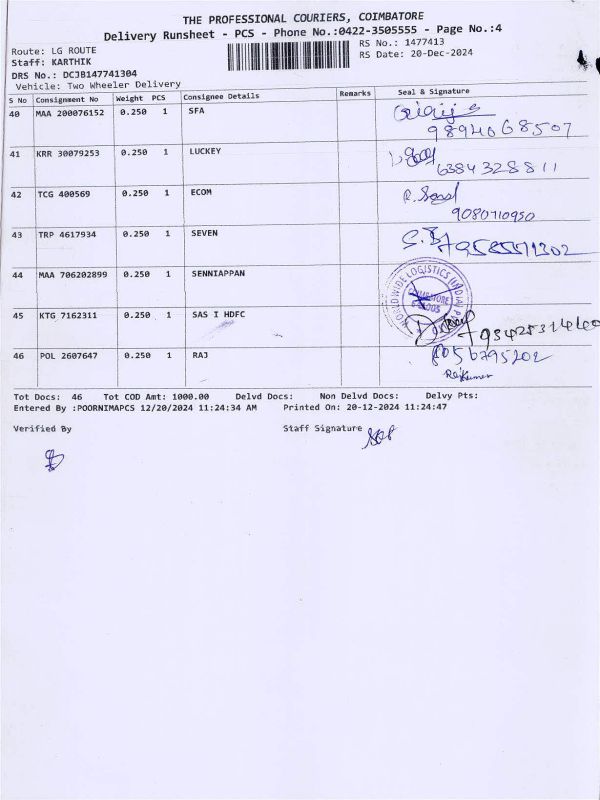 THE PROFESSIONAL COURIERS, COIMBATORE
Delivery Runsheet - PCS - Phone No.:0422-3505555 - Page No.:4
Route: LG ROUTE
RS No.: 1477413
Staff: KARTHIK
RS Date: 20-Dec-2024
DRS No.: DCJB147741304
Vehicle: Two Wheeler Delivery
S No Consignment No Weight PCS Consignee Details Remarks Seal & Signature
40 MAA 200076152 0.250 1 SFA
9894068507
41 KRR 30079253 0.250 1 LUCKEY
6384328811
42 TCG 400569 0.250 1 ECOM
9080710950
43 TRP 4617934 0.250 1 SEVEN
44 MAA 706202899 0.250 1 SENNIAPPAN
WORLDWIDE LOGISTICS (INDIA)
COIMBATORE
45 KTG 7162311 0.250 1 SAS I HDFC
46 POL 2607647 0.250 1 RAJ
8056795202
Rajkumar
Tot Docs: 46 Tot COD Amt: 1000.00 Delvd Docs: Non Delvd Docs: Delvy Pts:
Entered By :POORNIMAPCS 12/20/2024 11:24:34 AM Printed On: 20-12-2024 11:24:47
Verified By
Staff Signature